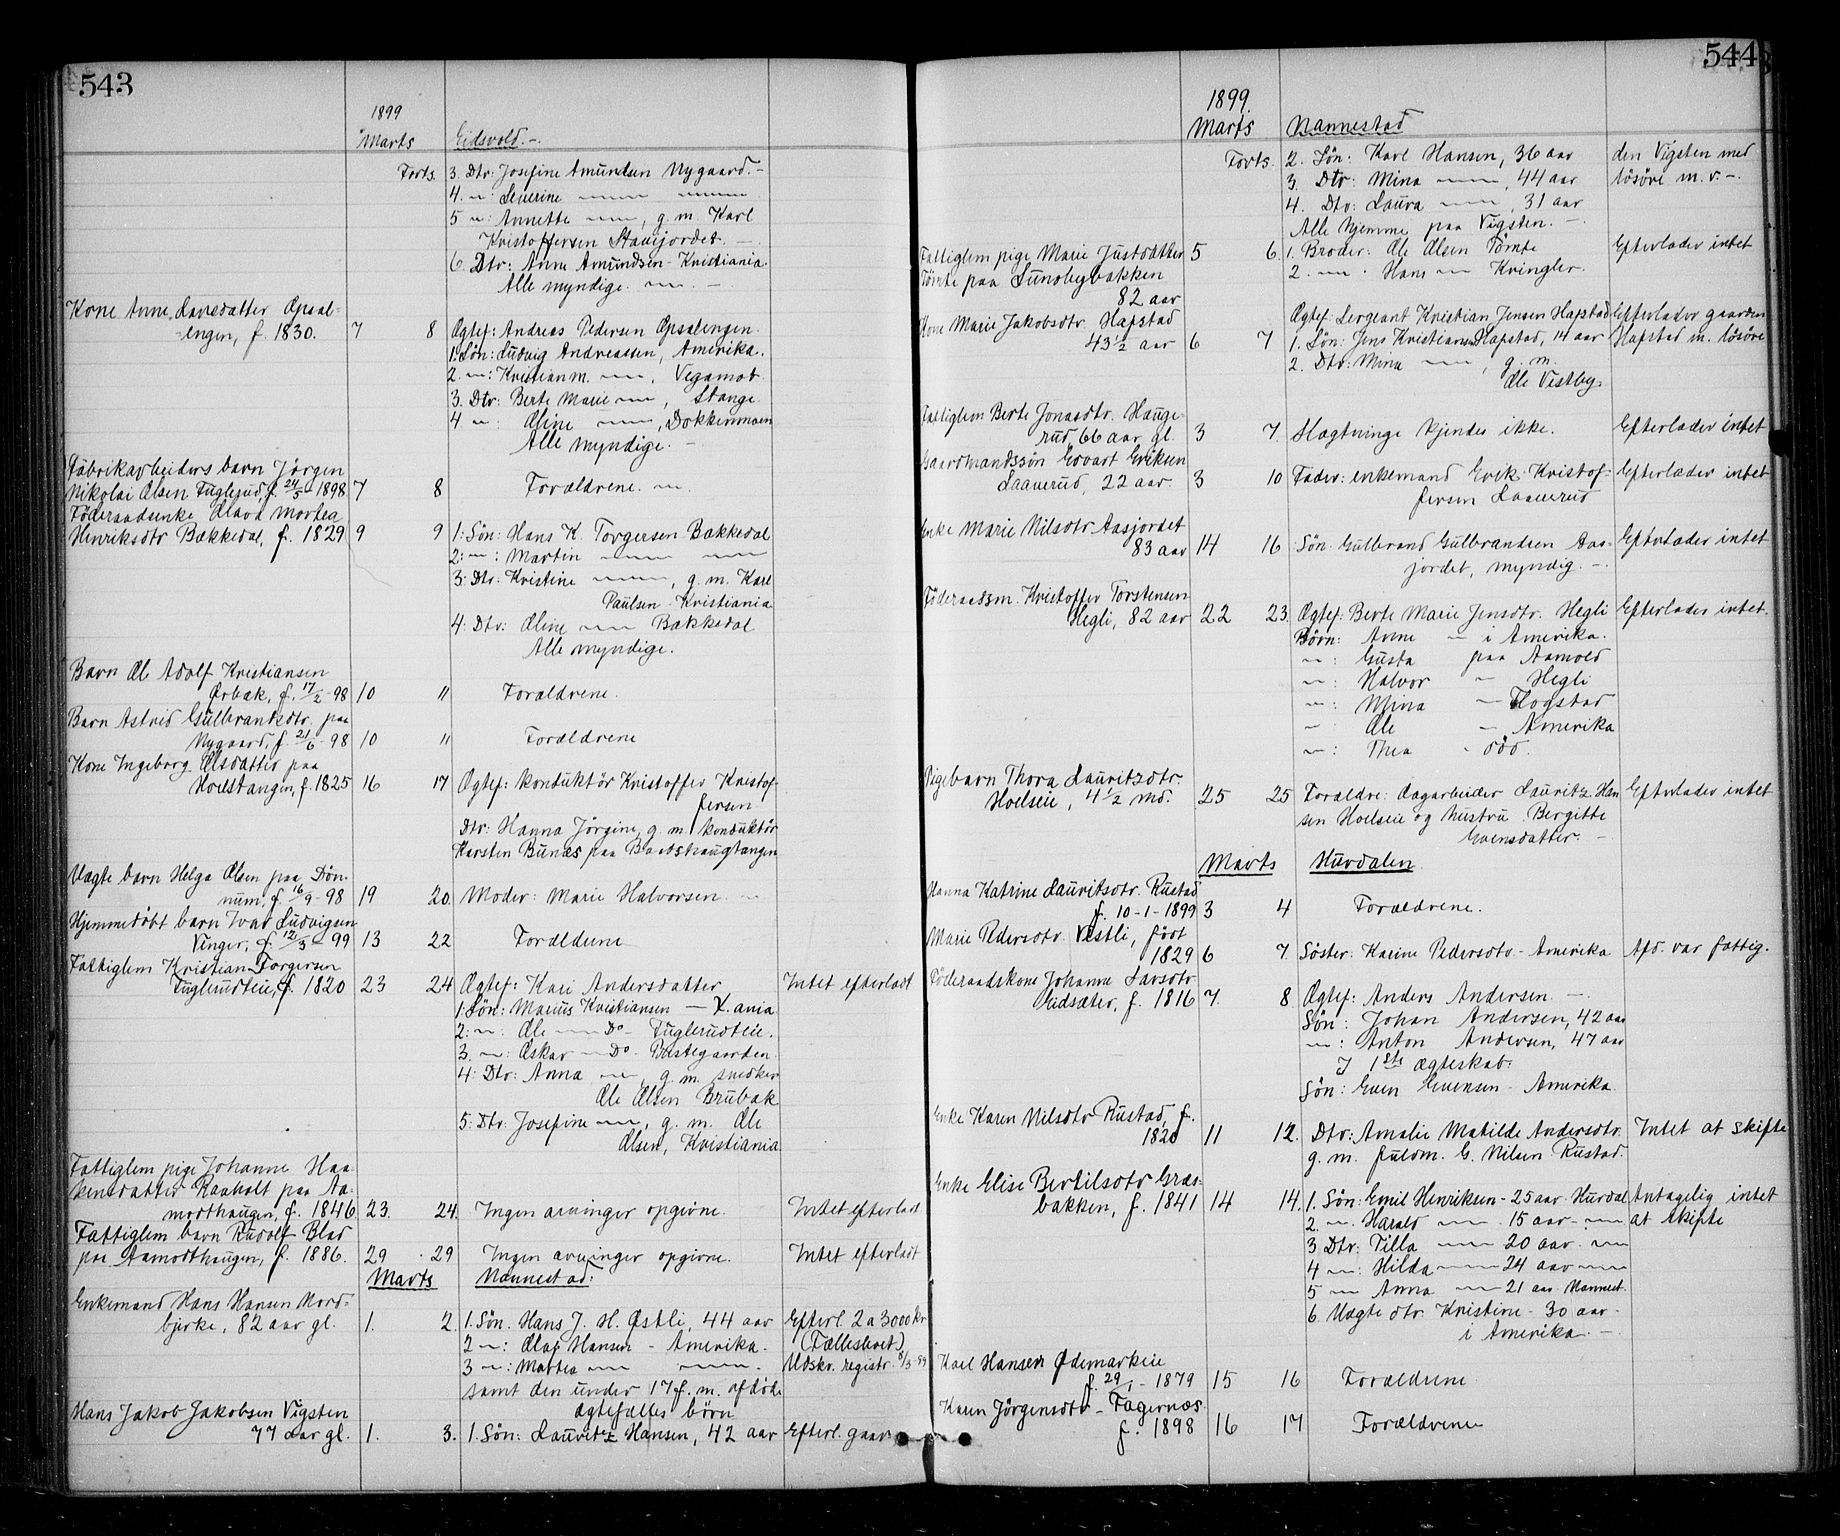 543
1899
Marts Eidsvold.-
Forts. 3. Dtr: Josefine Amundsen Nygaard.-
4. -"-: Severine -"- -"-
5 -"-: Annette -"-, g. m. Karl
Kristoffersen Stauijordet. -
6. Dtr: Anne Amundsen - Kristiania.
Alle myndige. -"- -
Kone Anne Larsdatter Opsal-
engen, f. 1830. 7 8 Ægtef: Andreas Pedersen Opsalengen.
1. Søn: Ludvig Andreassen, Amerika.
2. -"-: Kristian M. -"-, Vegamot.
3. Dtr: Berte Marie -"-, Stange.
4 -"-: Oline -"-, Dokkenmoen
Alle myndige. -
Fabrikarbeiders barn Jörgen
Nikolai Olsen Fuglerud, f. 24/5 1898 7 8 Forældrene. -"-
Föderaadsenke Olava Mortea
Henriksdtr Bækkedal, f. 1829 9 9 1: Søn: Hans K. Torgersen Bækkedal
2: -"-: Martin -"- -"-
3: Dtr: Kristine -"-, g. m. Karl
Paulsen - Kristiania
4: Dtr: Oline -"- Bækkedal
Alle myndige.
Barn Ole Adolf Kristiansen
Ørbæk, f. 17/2 -98 10 11 Forældrene.
Barn Astrid Gulbrandsdtr. paa
Nygaard, f. 21/6 -98 10 11 Forældrene
Kone Ingeborg Olsdatter paa
Hoelstangen, f. 1825 16 17 Ægtef: konduktör Kristoffer Kristof-
fersen
Dtr: Hanna Jörgine, g. m. konduktör
Karsten Bunæs paa Baadshaugtangen
Uægte barn Helga Olsen paa Dön-
num, f. 16/9 -98 19 20. Moder: Marie Halvorsen. -
Hjemmedöbt barn Ivar Ludvigsen
Vinger, f. 12/3 -99 13 22 Forældrene
Fattiglem Kristian Torgersen
Fuglerudeie, f. 1820 23 24 Ægtef: Kari Andersdatter Intet efterladt
1: Søn: Marius Kristiansen - X.ania
2: -"-: Ole -"- Do - Fuglerudeie.
3. -"-: Oskar - Do - Prestegaarden.
4: Dtr: Anna -"-, g. m. snedker
Ole Olsen Brubæk
5: Dtr: Josefine -"-, g. m. Ole
Olsen, Kristiania
Fattiglem pige Johanne Haa-
kensdatter Raaholt paa Aa-
modthaugen, f. 1846 23. 24. Ingen arvinger opgivne. Intet efterladt
Fattiglem barn Rudolf Blad
paa Aamodthaugen, f. 1886. 29 29 Ingen arvinger opgivne. Intet efterladt
Marts Nannestad:
Enkemand Hans Hansen Nord-
bjerke, 82 aar gl. 1. 2. 1. Søn. Hans J. H. Østli, 44 aar Efterl. 2 a 3000 kr
2 -"-: Olaf Hansen - Amerika. (Fællesboet)
3 -"-: Mathea -"- -"-. Udskr. registr. 8/3-99
samt den under 17 f. m. afdöde
ægtefælles börn
Hans Jakob Jakobsen Vigsten
77 aar gl. 1. 3. 1. Søn: Lauritz Hansen, 42 aar Efterl. gaar-
544
1899.
Marts Nannestad
Forts. 2. Søn: Karl Hansen, 36 aar den Vigsten med
3. Dtr: Mina -"-, 44 aar lösöre m. v. -.
4. Dtr: Laura -"-, 31 aar
Alle hjemme paa Vigsten. -
Fattiglem pige Marie Justsdatter 5 6. 1. Broder: Ole Olsen Tömte Efterlader intet
Tömte paa Lundbybakken 2. -"- : Hans -"- Kringler.
82 aar
Kone Marie Jakobsdtr. Hafstad Ægtef: Sergeant Kristian Jensen Hafstad Efterlader gaarden
43 1/2 aar 6 7 1. Søn: Jens Kristiansen Hafstad, 14 aar Hafstad m. lösöre
2. Dtr: Mina -"-, g. m.
Ole Vestby.
Fattiglem Berte Jonasdtr. Hauge-
rud, 66 aar gl. 3 7. Slægtninge kjendes ikke. Efterlader intet
Gaardmandssön Edvart Eriksen
Laaverud, 22 aar 3 10 Fader: enkemand Erik Kristof- Efterlader intet
fersen Laaverud
Enke Marie Nilsdtr Aasjordet
83 aar 14 16 Søn: Gulbrand Gulbrandsen Aas- Efterlader intet
jordet, myndig. -.
Föderaadsm. Kristoffer Torstensen
Hegli, 82 aar 22 23. Ægtef: Berte Marie Jensdtr. Hegli Efterlader intet.
Börn: Anne - i Amerika.
-"-: Gusta paa Aamold
-"-: Halvor - Hegli
-"-: Mina - Flogstad
-"- Ole - Amerika
-"-: Thea - död.
Pigebarn Thora Lauritzdtr.
Hoelseie, 4 1/2 md. 25 25 Forældre: dagarbeider Lauritz Han- Efterlader intet
sen Hoelseie og hustru Bergitte
Evensdatter. -
Marts Hurdalen
Hanna Katrine Lauritsdtr. Rustad
f. 10-1-1899 3 4 Forældrene.
Marie Pedersdtr. Vestli, födt
1829 6 7. Söster: Karine Pedersdtr. - Amerika Afd. var fattig.
Föderaadskone Johanne Larsdtr.
Eidsæter, f. 1816 7. 8 Ægtef: Anders Andersen. -.
Søn: Johan Andersen, 42 aar
-"-: Anton Andersen, 47 aar
I 1ste ægteskab:
Søn: Even Evensen - Amerika.
Enke Karen Nilsdtr Rustad, f.
1820 11 12. Dtr: Amalie Matilde Andersdtr. Intet at skifte
g. m. fuldm. G. Nilsen Rustad.
Enke Elise Bertilsdtr Græs-
bakken, f. 1841 14 14. 1. Søn: Emil Henriksen - 25 aar - Hurdal Antagelig intet
2. -"- Harald -"- 15 aar - -"- at skifte
3 Dtr: Tilla -"- 20 aar. -"-
4 -"-: Hilda -"- 24 aar -"-
5 -"- Anna -"- 21 aar Nannest.
6. Uægte dtr. Kristine - 30 aar -
i Amerika. -
Karl Hansen Ødemarkeie
f. 29/1 - 1879 15 16 Forældrene.
Karen Jörgensdtr - Fagernæs
f. 1898 16 17 Forældrene